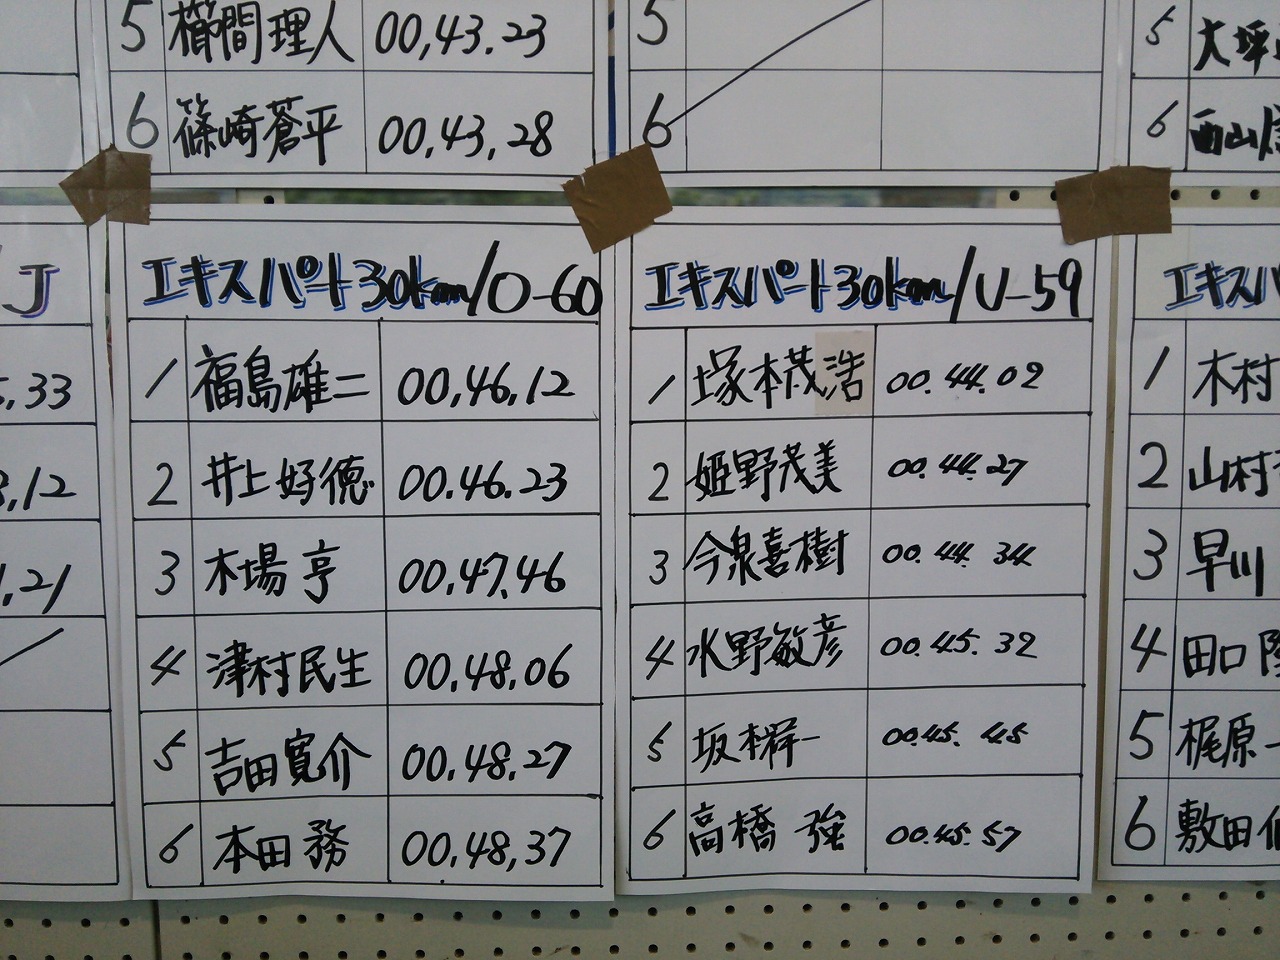 5 櫛間理人 00,43.23
6 篠崎蒼平 00,43,28
5
6
5 大坪
6 西山
J
33
12
21
エキスパート30km/O-60
1 福島雄二 00,46,12
2 井上好徳 00.46.23
3 木場亨 00,47,46
4 津村民生 00,48,06
5 吉田寛介 00,48,27
6 本田務 00,48,37
エキスパート30km/U-59
1 塚本茂浩 00.44.02
2 姫野茂美 00.44.27
3 今泉喜樹 00.44.34
4 水野敏彦 00.45.32
5 坂本祥一 00.45.45
6 高橋強 00.45.57
エキスパ
1 木村
2 山村
3 早川
4 田口
5 梶原
6 敷田